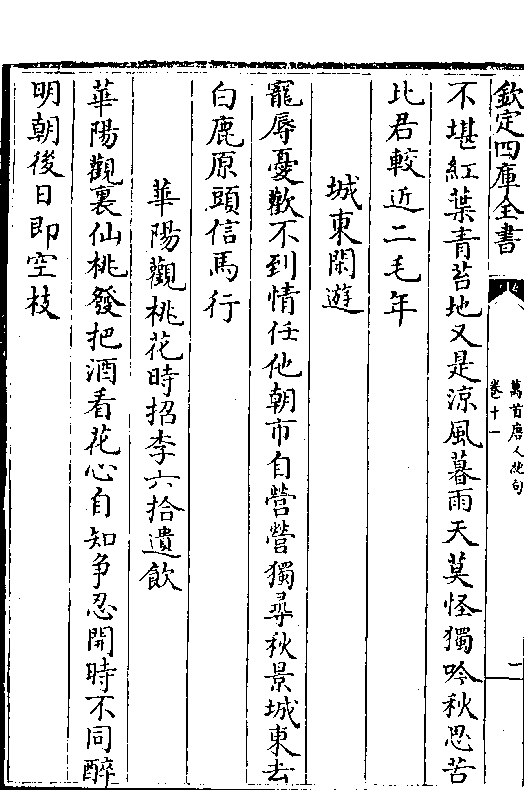 欽定四庫全書
萬首唐人絶句
卷十一
二
不堪紅葉青苔地又是涼風暮雨天莫怪獨吟秋思苦
比君較近二毛年
城東閑遊
寵辱憂歡不到情任他朝市自營營獨尋秋景城東去
白鹿原頭信馬行
華陽觀桃花時招李六拾遺飲
華陽觀裏仙桃發把酒看花心自知争忍開時不同醉
明朝後日即空枝